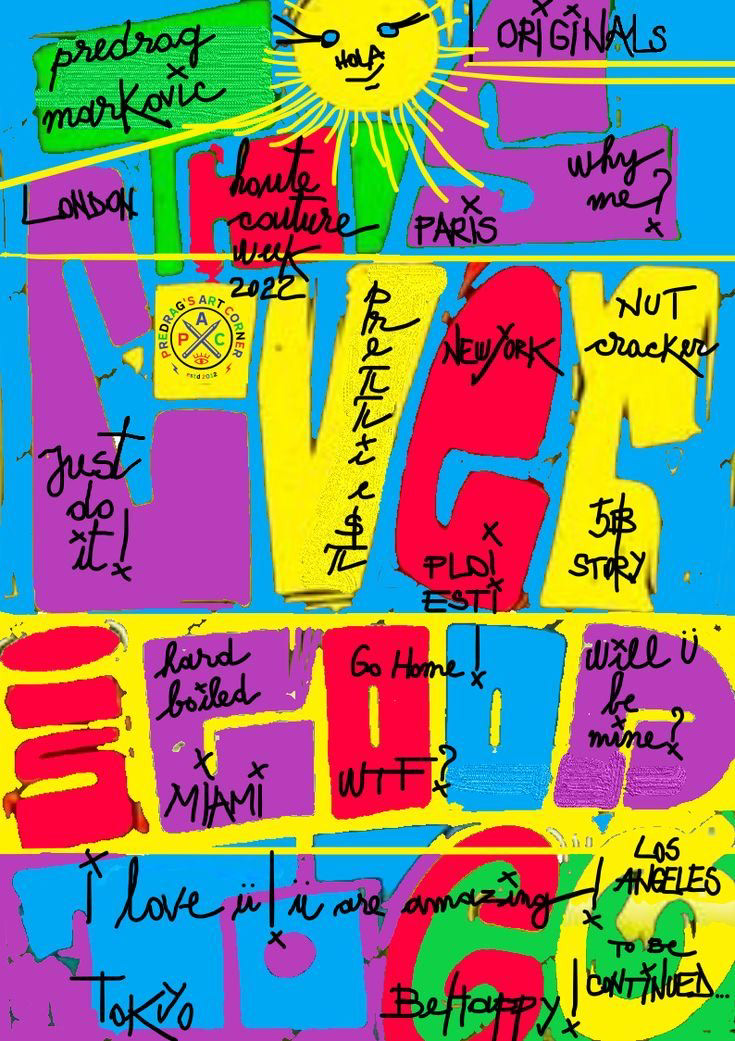 predrag
marković
HOLA
ORIGINALS
LONDON
houte
couture
week
2022
PARIS
why
me?
PREDRAG'S ART CORNER
PAC
estd 2012
NEWYORK
NUT
cracker
Just
do
it!
PLO!
ESTI
5$B
STORY
LIVER
is GOOD
hard
boiled
MIAMI
Go Home!
WTF?
will ü
be
mine?
i love ü! ü are amazing!
LOS
ANGELES
TOKYO
BeHappy!
TO BE
CONTINUED...